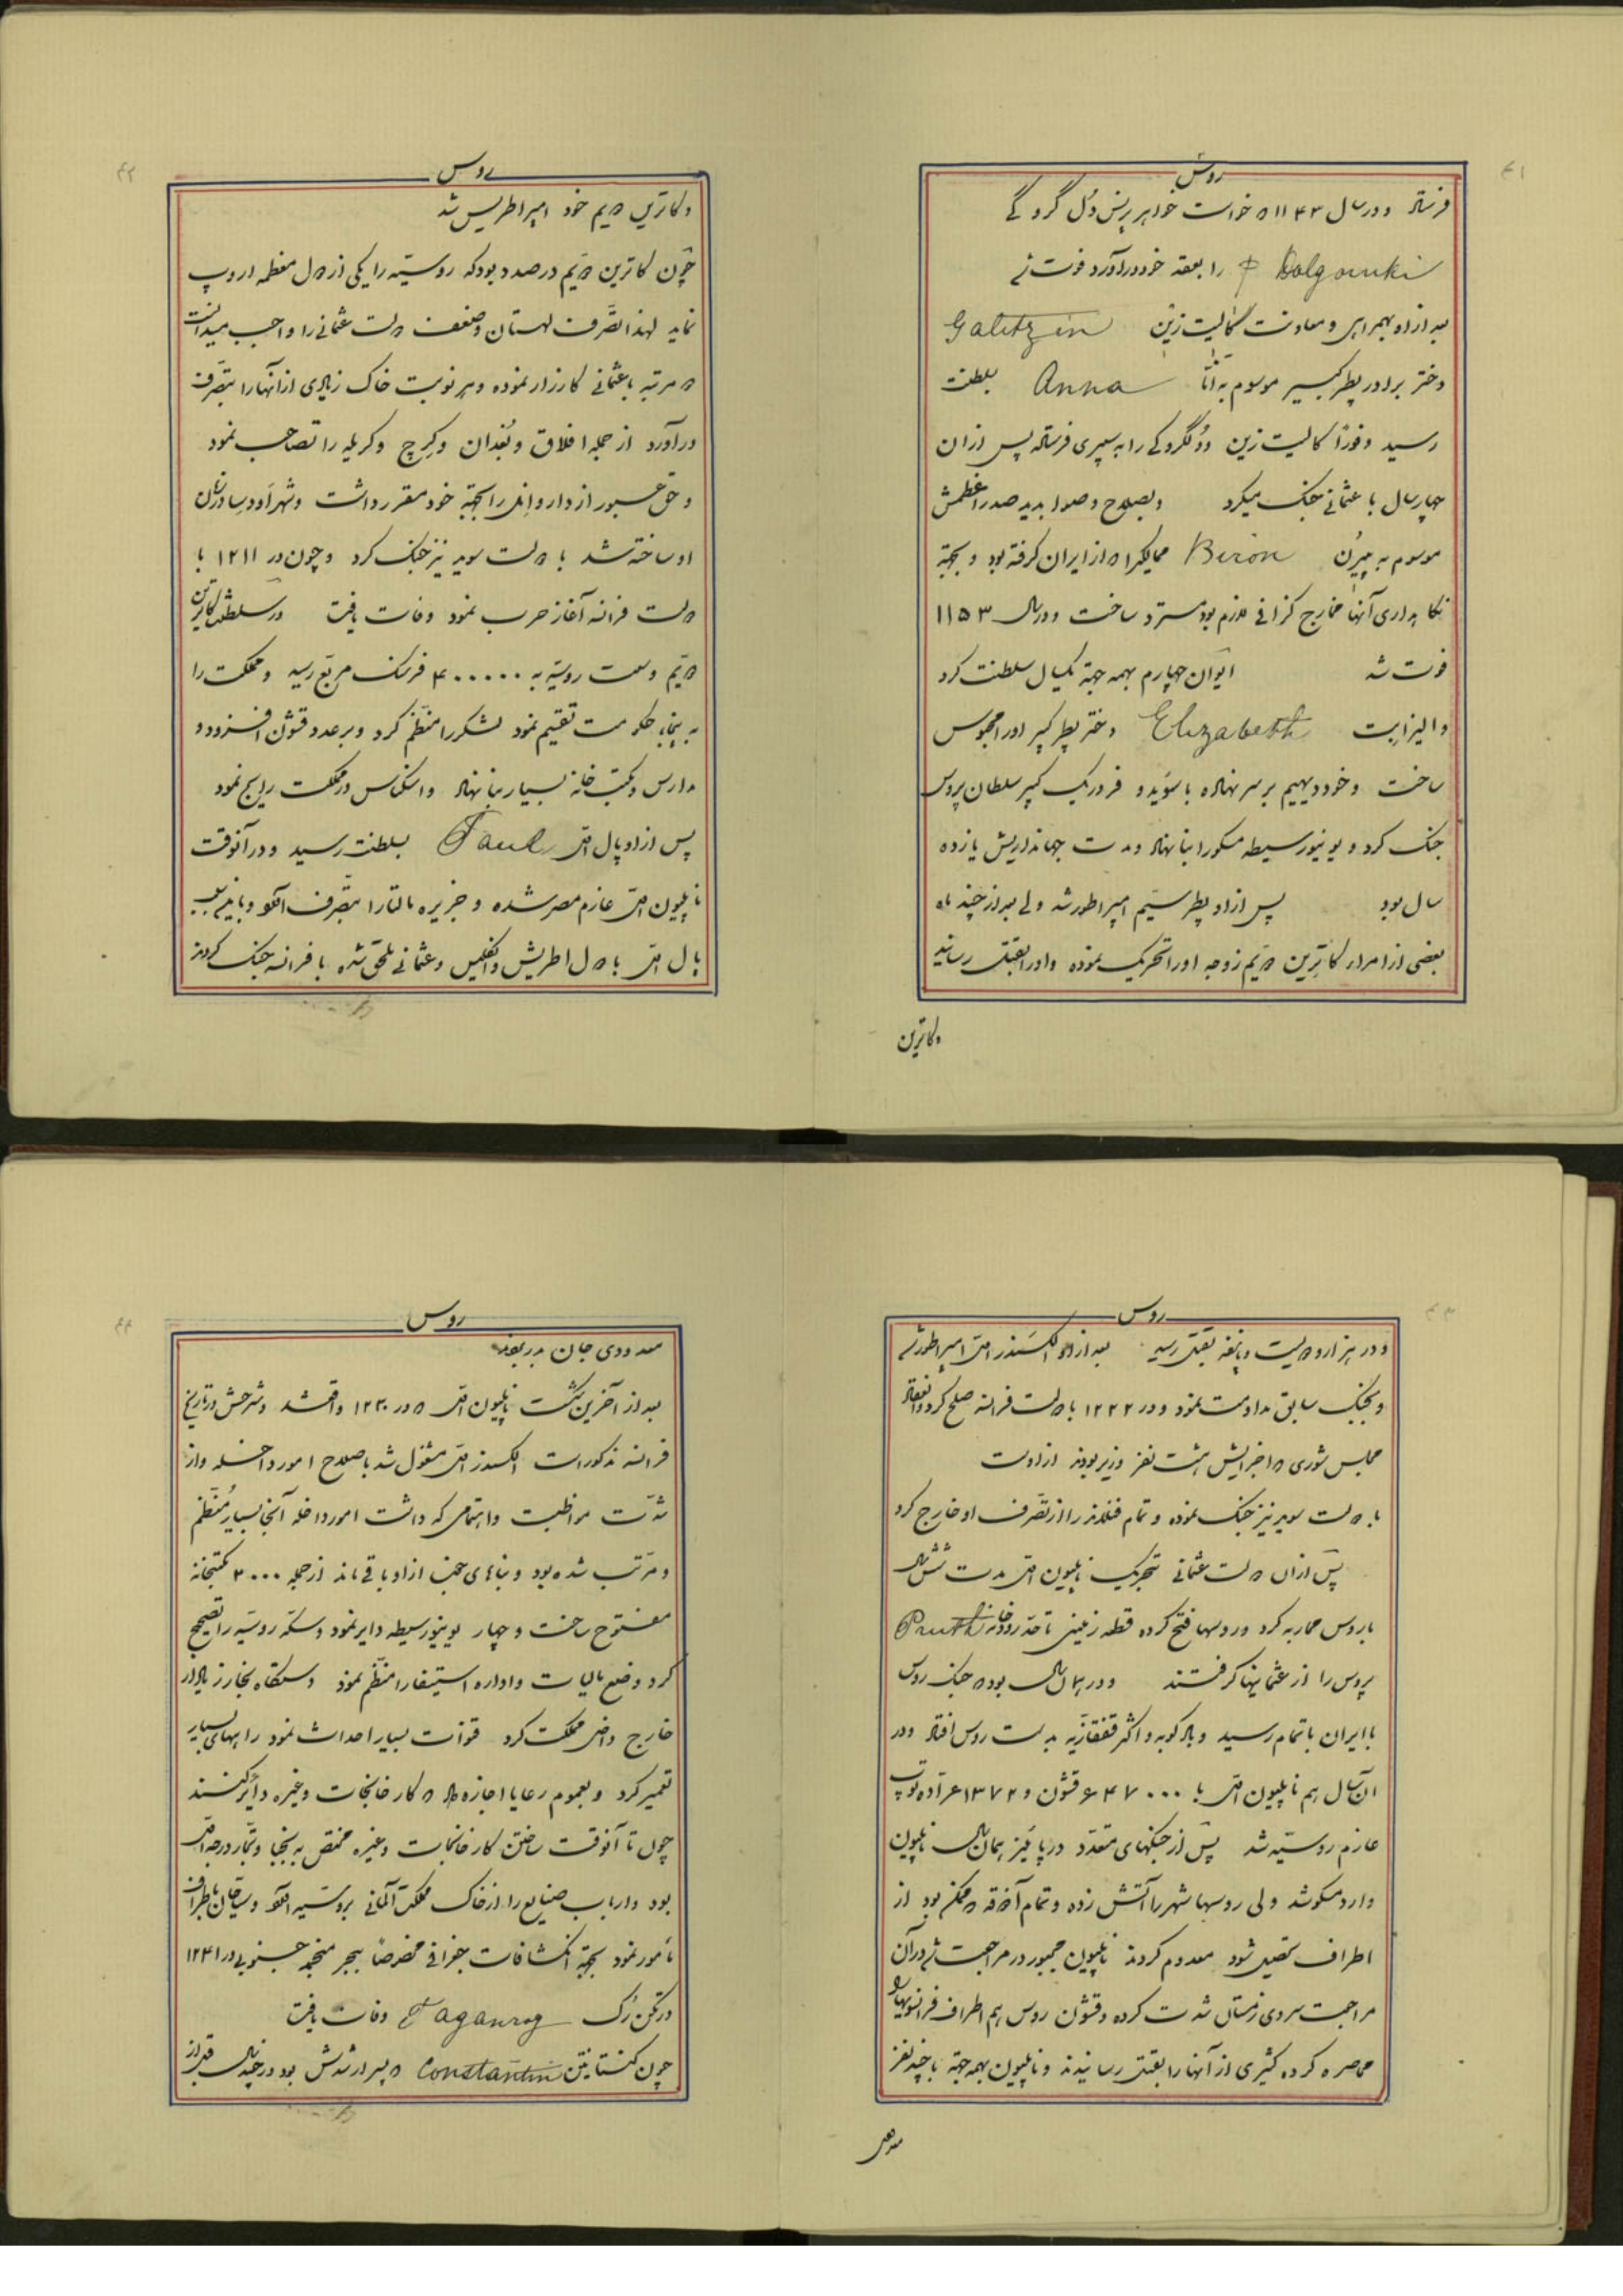 ۴۱
روس
فرستاد و در سال ۱۱۴۳ که خواست خواهر پرنس دُل گرو کے
Dolgorouki را بعقد خود درآورد فوت شد
بعد از او بهمراهی و معاونت گالیت زین Galitzin
دختر برادر پطر کبیر موسوم به آنّا Anna بسلطنت
رسید و فوراً گالیت زین و دُلگروکی را به سیبری فرستاد پس از آن
چهار سال با عثمانی جنک میکرد و بصلاح و صوابدید صدر اعظمش
موسوم به بیرُن Biron ممالیکرا که از ایران گرفته بود و بجهة
نکاهداری آنها مخارج گزافی لازم بود مسترد ساخت و در سال ۱۱۵۳
فوت شد ایوان چهارم بهمه جهة یکسال سلطنت کرد
و الیزابت Elizabeth دختر پطر کبیر او را محبوس
ساخت و خود دیهیم بر سر نهاده با سوئد و فردریک کبیر سلطان پروس
جنک کرد و یونیورسیطه مسکو را بنا نهاد و مدت جهانداریش یازده
سال بود پس از او پطر سیّم امپراطور شد ولی بعد از چند ماه
بعضی از امراء کاترین دویّم زوجه او را تحریک نموده و او را بقتل رسانید
و کاترین
۴۲
روس
و کاترین دویم خود امپراطریس شد
چون کاترین دویّم در صدد بود که روسیّه را یکی از دول معظمه اروپ
نماید لهذا تصّرف لهستان و ضعف دولت عثمانی را واجب میدانست
دو مرتبه با عثمانی کارزار نموده و هر نوبت خاک زیادی از آنها را بتصّرف
درآورد از جمله افلاق و بُغدان و کِرچ و کریمه را تصاحب نمود
و حق عبور از داردانل را بجهة خود مقرر داشت و شهر اُودسا در زمان
او ساخته شد با دولت سوید نیز جنک کرد و چون در ۱۲۱۱ با
دولت فرانسه آغاز حرب نمود وفات یافت در سلطنت کاترین
دویّم وسعت روسیّه به ۴۰۰۰۰۰ فرسک مربّع رسید و مملکت را
به پنجاه حکومت تقسیم نمود لشکر را منظّم کرد و بر عدد قشون افزود و
مدارس و مکتب خانه بسیار بنا نهاد و اسکناس در مملکت رایج نمود
پس از او پال اوّل Paul بسلطنت رسید و در آنوقت
ناپلیون اوّل عازم مصر شده و جزیره مالتا را بتصّرف آورد
پال اوّل با دول اطریش و انکلیس و عثمانی ملحق شده با فرانسه جنک کردند
۴۳
روس
و در هزار و دویست و پانزده بقتل رسید بعد از او الکسندر اوّل امپراطور شد
و بجنک سابق مداومت نمود و در ۱۲۲۲ با دولت فرانسه صلح کرد و انعقاد
مجلس شوری که اجزایش هشت نفر وزیر بودند از اوست
با دولت سوید نیز جنک نموده و تمام فنلاند را از تصّرف او خارج کرد
پس از آن دولت عثمانی بتحریک ناپلیون اوّل مدت شش سال
با روس محاربه کرد و روسها فتح کرده قطعه زمینی تا حدّ رودخانه Pruth
پروس را از عثمانیها گرفتند و در همان سال بود که جنک روس
با ایران باتمام رسید و بادکوبه و اکثر قفقازیّه بدست روس افتاد و در
آن سال هم ناپلیون اوّل با ۶۴۷۰۰۰ قشون و ۱۳۷۲ عرّاده توپ
عازم روسیّه شد پس از جنکهای متعدّد در پائیز همان سال ناپلیون
وارد مسکو شد ولی روسها شهر را آتش زده و تمام آذوقه که ممکن بود از
اطراف تحصیل شود معدوم کردند ناپلیون مجبور در مراجعت شد در آن
مراجعت سردی زمستان شدت کرده و قشون روس هم اطراف فرانسویها را
محاصره کرده کثیری از آنها را بقتل رسانیدند و ناپلیون بهمه جهة با چند نفر
معدودی
۴۴
روس
معدودی جان بدر بردند
بعد از آخرین شکست ناپلیون اوّل که در ۱۲۳۰ واقع شد و شرحش در تاریخ
فرانسه مذکور است الکسندر اوّل مشغول شد باصلاح امور داخله و از
شدّت مواظبت و اهتمامی که داشت امور داخله آنجا بسیار مُنظّم
و مرّتب شده بود و بناهای خوب از او باقی ماند از جمله ۳۰۰۰ مکتبخانه
مفتوح ساخت و چهار یونیورسیطه دایر نمود و سکّه روسیّه را تصحیح
کرد و وضع مالیات و اداره استیفا را منظّم نمود و دستگاه بخار زیاد از
خارج داخل مملکت کرد قنوات بسیار احداث نمود راههای بسیار
تعمیر کرد و بعموم رعایا اجازه داد که کارخانجات و غیره دایر کنند
چون تا آنوقت ساختن کارخانجات و غیره مختص به نجبا و تجّار درجه اوّل
بود و ارباب صنایع را از خاک مملکت آلمانی بروسیّه آورد و سیّاحان باطراف
مأمور نمود بجهة انکشافات جغرافی مخصوصاً ببحر منجمد جنوبی در ۱۲۴۱
در تکن رُک Taganrog وفات یافت
چون کنستانتن Constantin که پسر ارشدش بود در چند سال قبل از